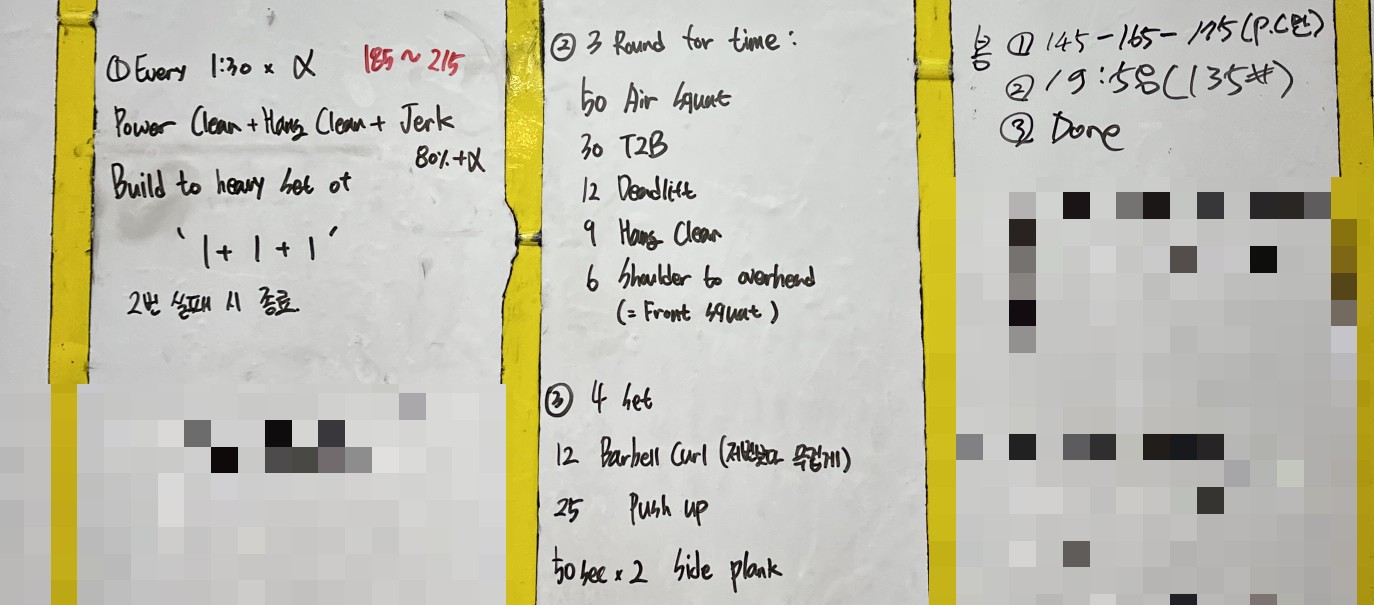 ① Every 1:30 x α 185 ~ 215
Power Clean + Hang Clean + Jerk
80% + α
Build to heavy set of
' 1 + 1 + 1 '
2번 실패 시 종료.
② 3 Round for time :
50 Air squat
30 T2B
12 Deadlift
9 Hang Clean
6 Shoulder to overhead
(= Front squat )
③ 4 set
12 Barbell Curl (저번보다 무겁게)
25 Push up
50 sec x 2 Side plank
① 145 - 165 - 175 (P.C만)
② 19 : 58 (135#)
③ Done